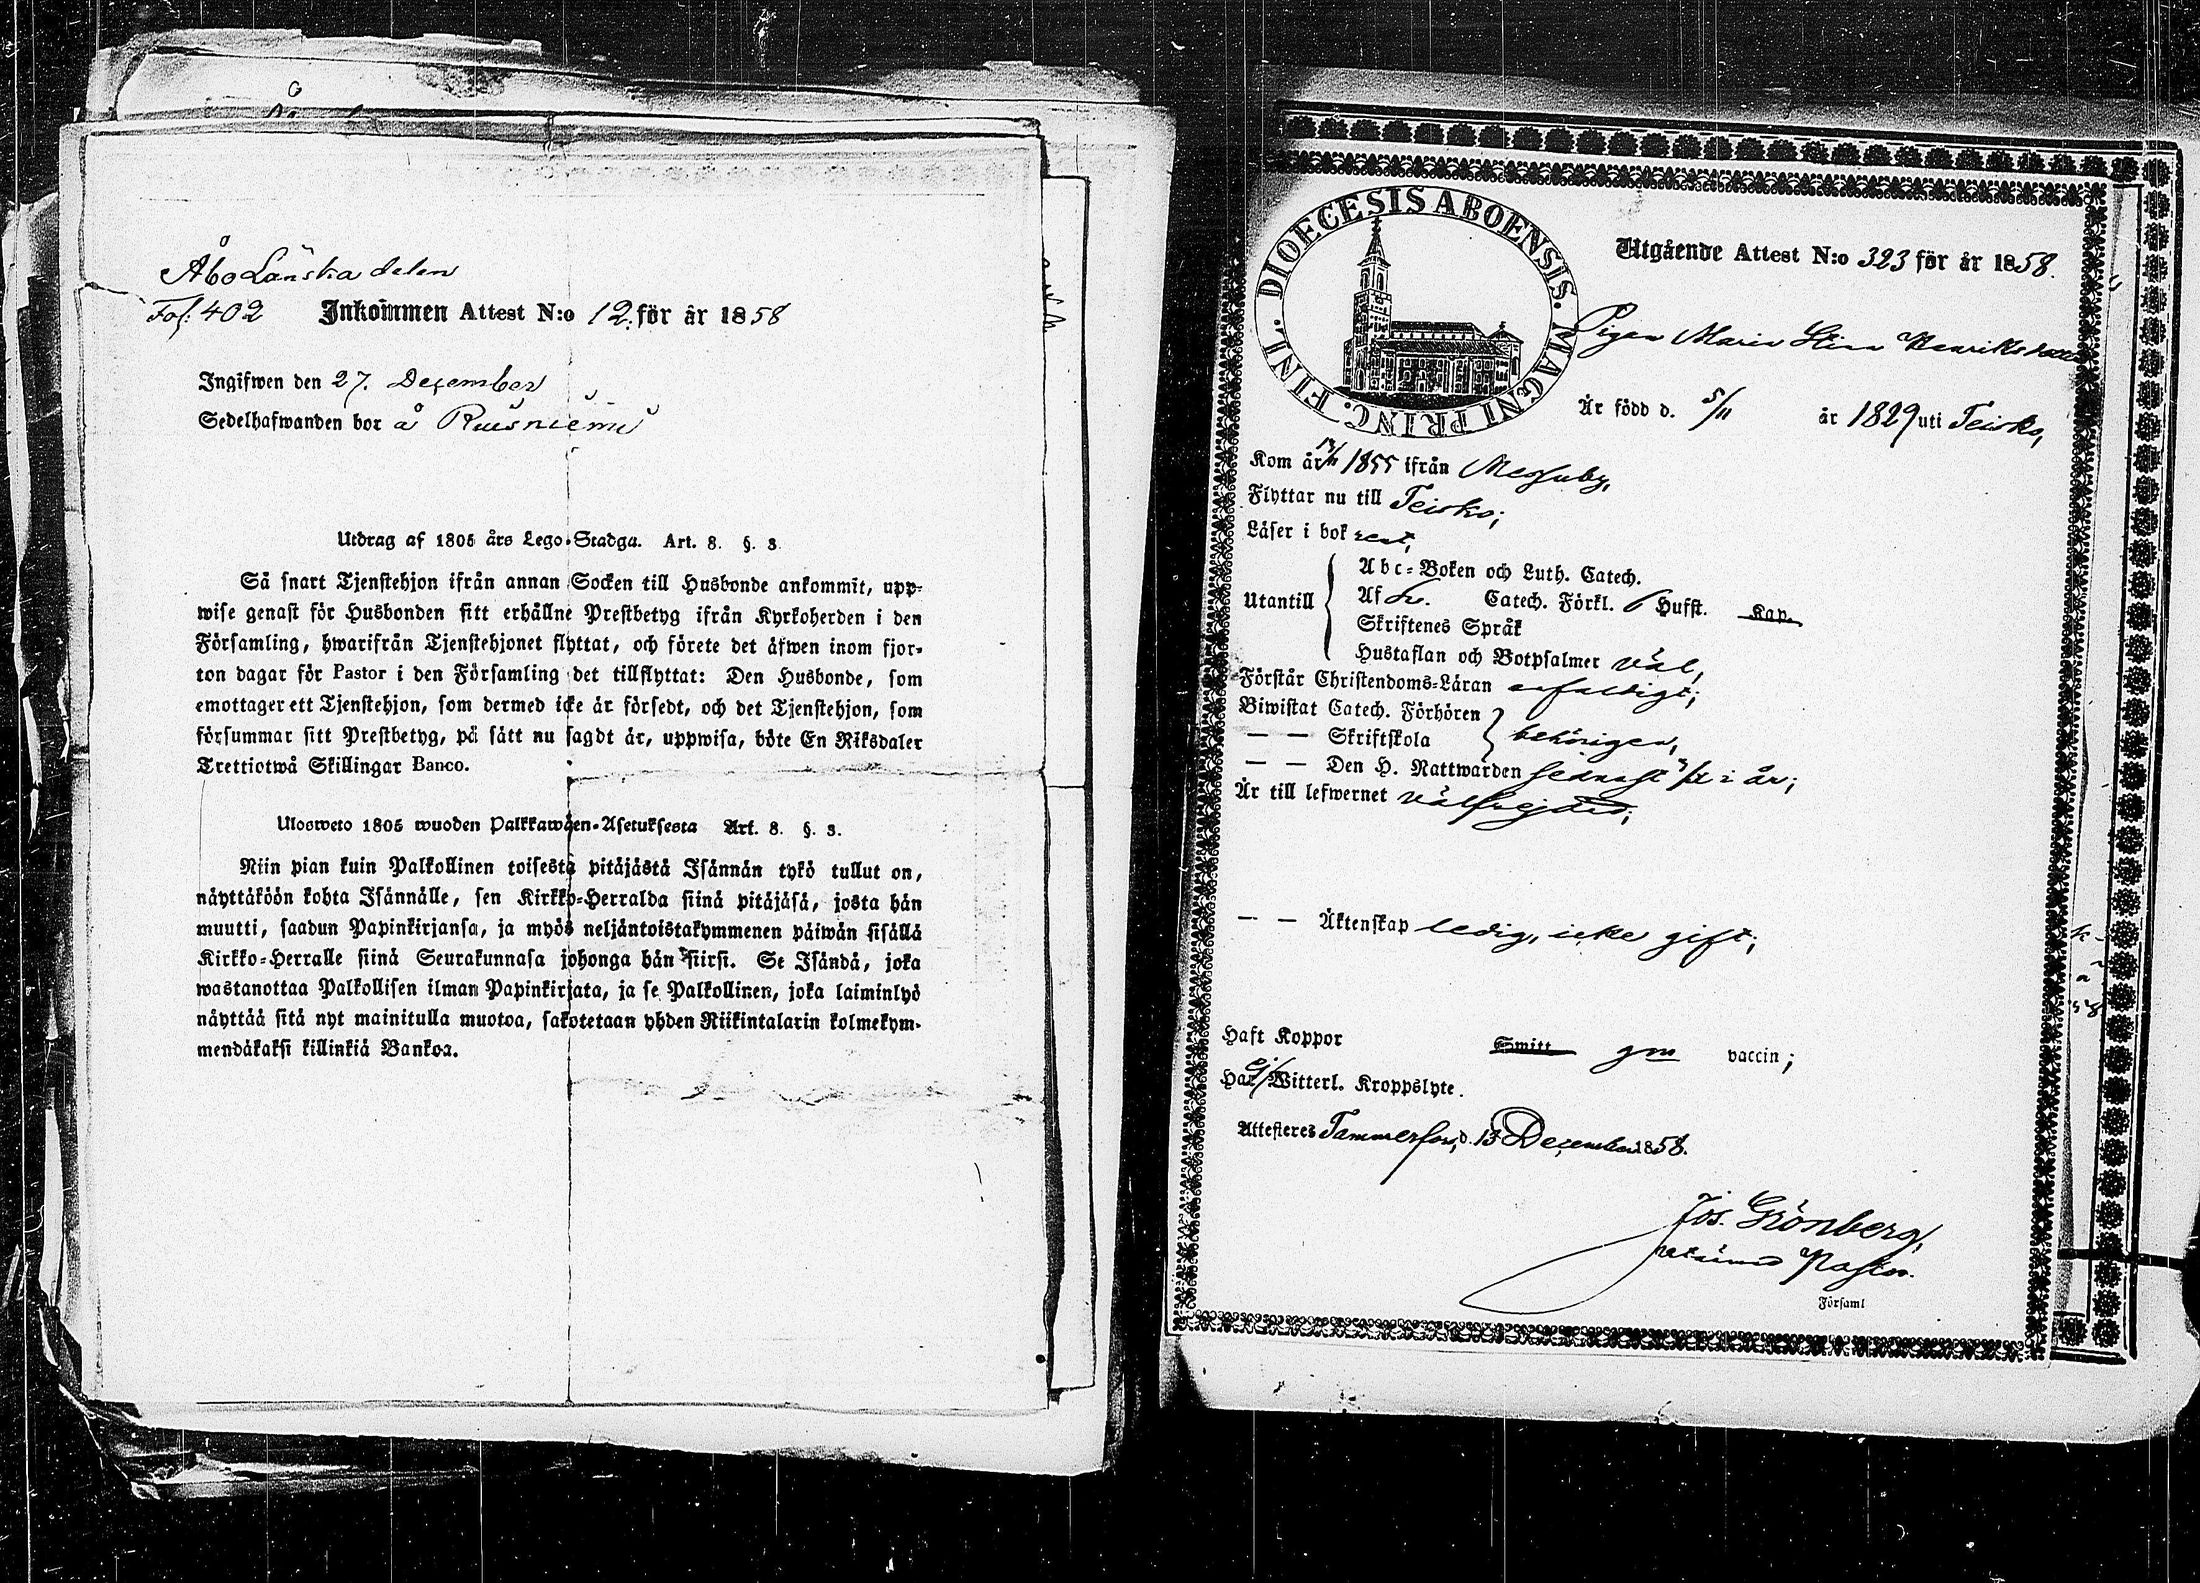 Åbo Länska delen
Fol: 402 Inkommen Attest N:o 12. för år 1858
Ingifwen den 27. December
Sedelhafwanden bor å Ruusniemi
Utdrag af 1805 års Lego-Stadga. Art. 8. §. 3.
Så snart Tjenstehjon ifrån annan Socken till Husbonde ankommit, upp-
wise genast för Husbonden sitt erhållne Prestbetyg ifrån Kyrkoherden i den
Församling, hwarifrån Tjenstehjonet flyttat, och förete det äfwen inom fjor-
ton dagar för Pastor i den Församling det tillflyttat: Den Husbonde, som
emottager ett Tjenstehjon, som dermed icke är försedt, och det Tjenstehjon, som
försummar sitt Prestbetyg, på sätt nu sagdt är, uppwisa, böte En Riksdaler
Trettiotwå Skillingar Banco.
Ulosweto 1805 wuoden Palkkawäen-Asetuksesta Art. 8. §. 3.
Niin pian kuin Palkollinen toisesta pitäjästä Isännän tykö tullut on,
näyttäköön kohta Isännälle, sen Kirkko-Herralda siinä pitäjäsä, josta hän
muutti, saadun Papinkirjansa, ja myös neljäntoistakymmenen päiwän sisällä
Kirkko-Herralle siinä Seurakunnasa johonga hän siirsi. Se Isändä, joka
wastanottaa Palkollisen ilman Papinkirjata, ja se Palkollinen, joka laiminlyö
näyttää sitä nyt mainitulla muotoa, sakotetaan yhden Riikintalarin kolmekym-
mendäkaksi killinkiä Bankoa.
DIOECESIS ABOENSIS. MAGNI PRINC. FINL.
Utgående Attest N:o 323 för år 1858.
Pigan Maria Stina Henriksdotter
Är född d. 5/11 år 1829 uti Teisko,
Kom år 1855 ifrån Messuby,
Flyttar nu till Teisko;
Läser i bok rent,
Abc-Boken och Luth. Catech.
Utantill Af Catech. Förkl. Hufst. Kap.
Skriftenes Språk
Hustaflan och Botpsalmer väl,
Förstår Christendoms-Läran enfaldigt;
Biwistat Catech. Förhören
— — Skriftskola behörigen,
— — Den H. Nattwarden sednast i år;
Är till lefwernet välfrejdad;
— — Äktenskap ledig, icke gift;
Haft Koppor Smitt gm vaccin;
Har ej Witterl. Kroppslyte.
Attesteres Tammerfors, d. 13 December 1858.
Jos. Grönberg,
Pastor.
Församl